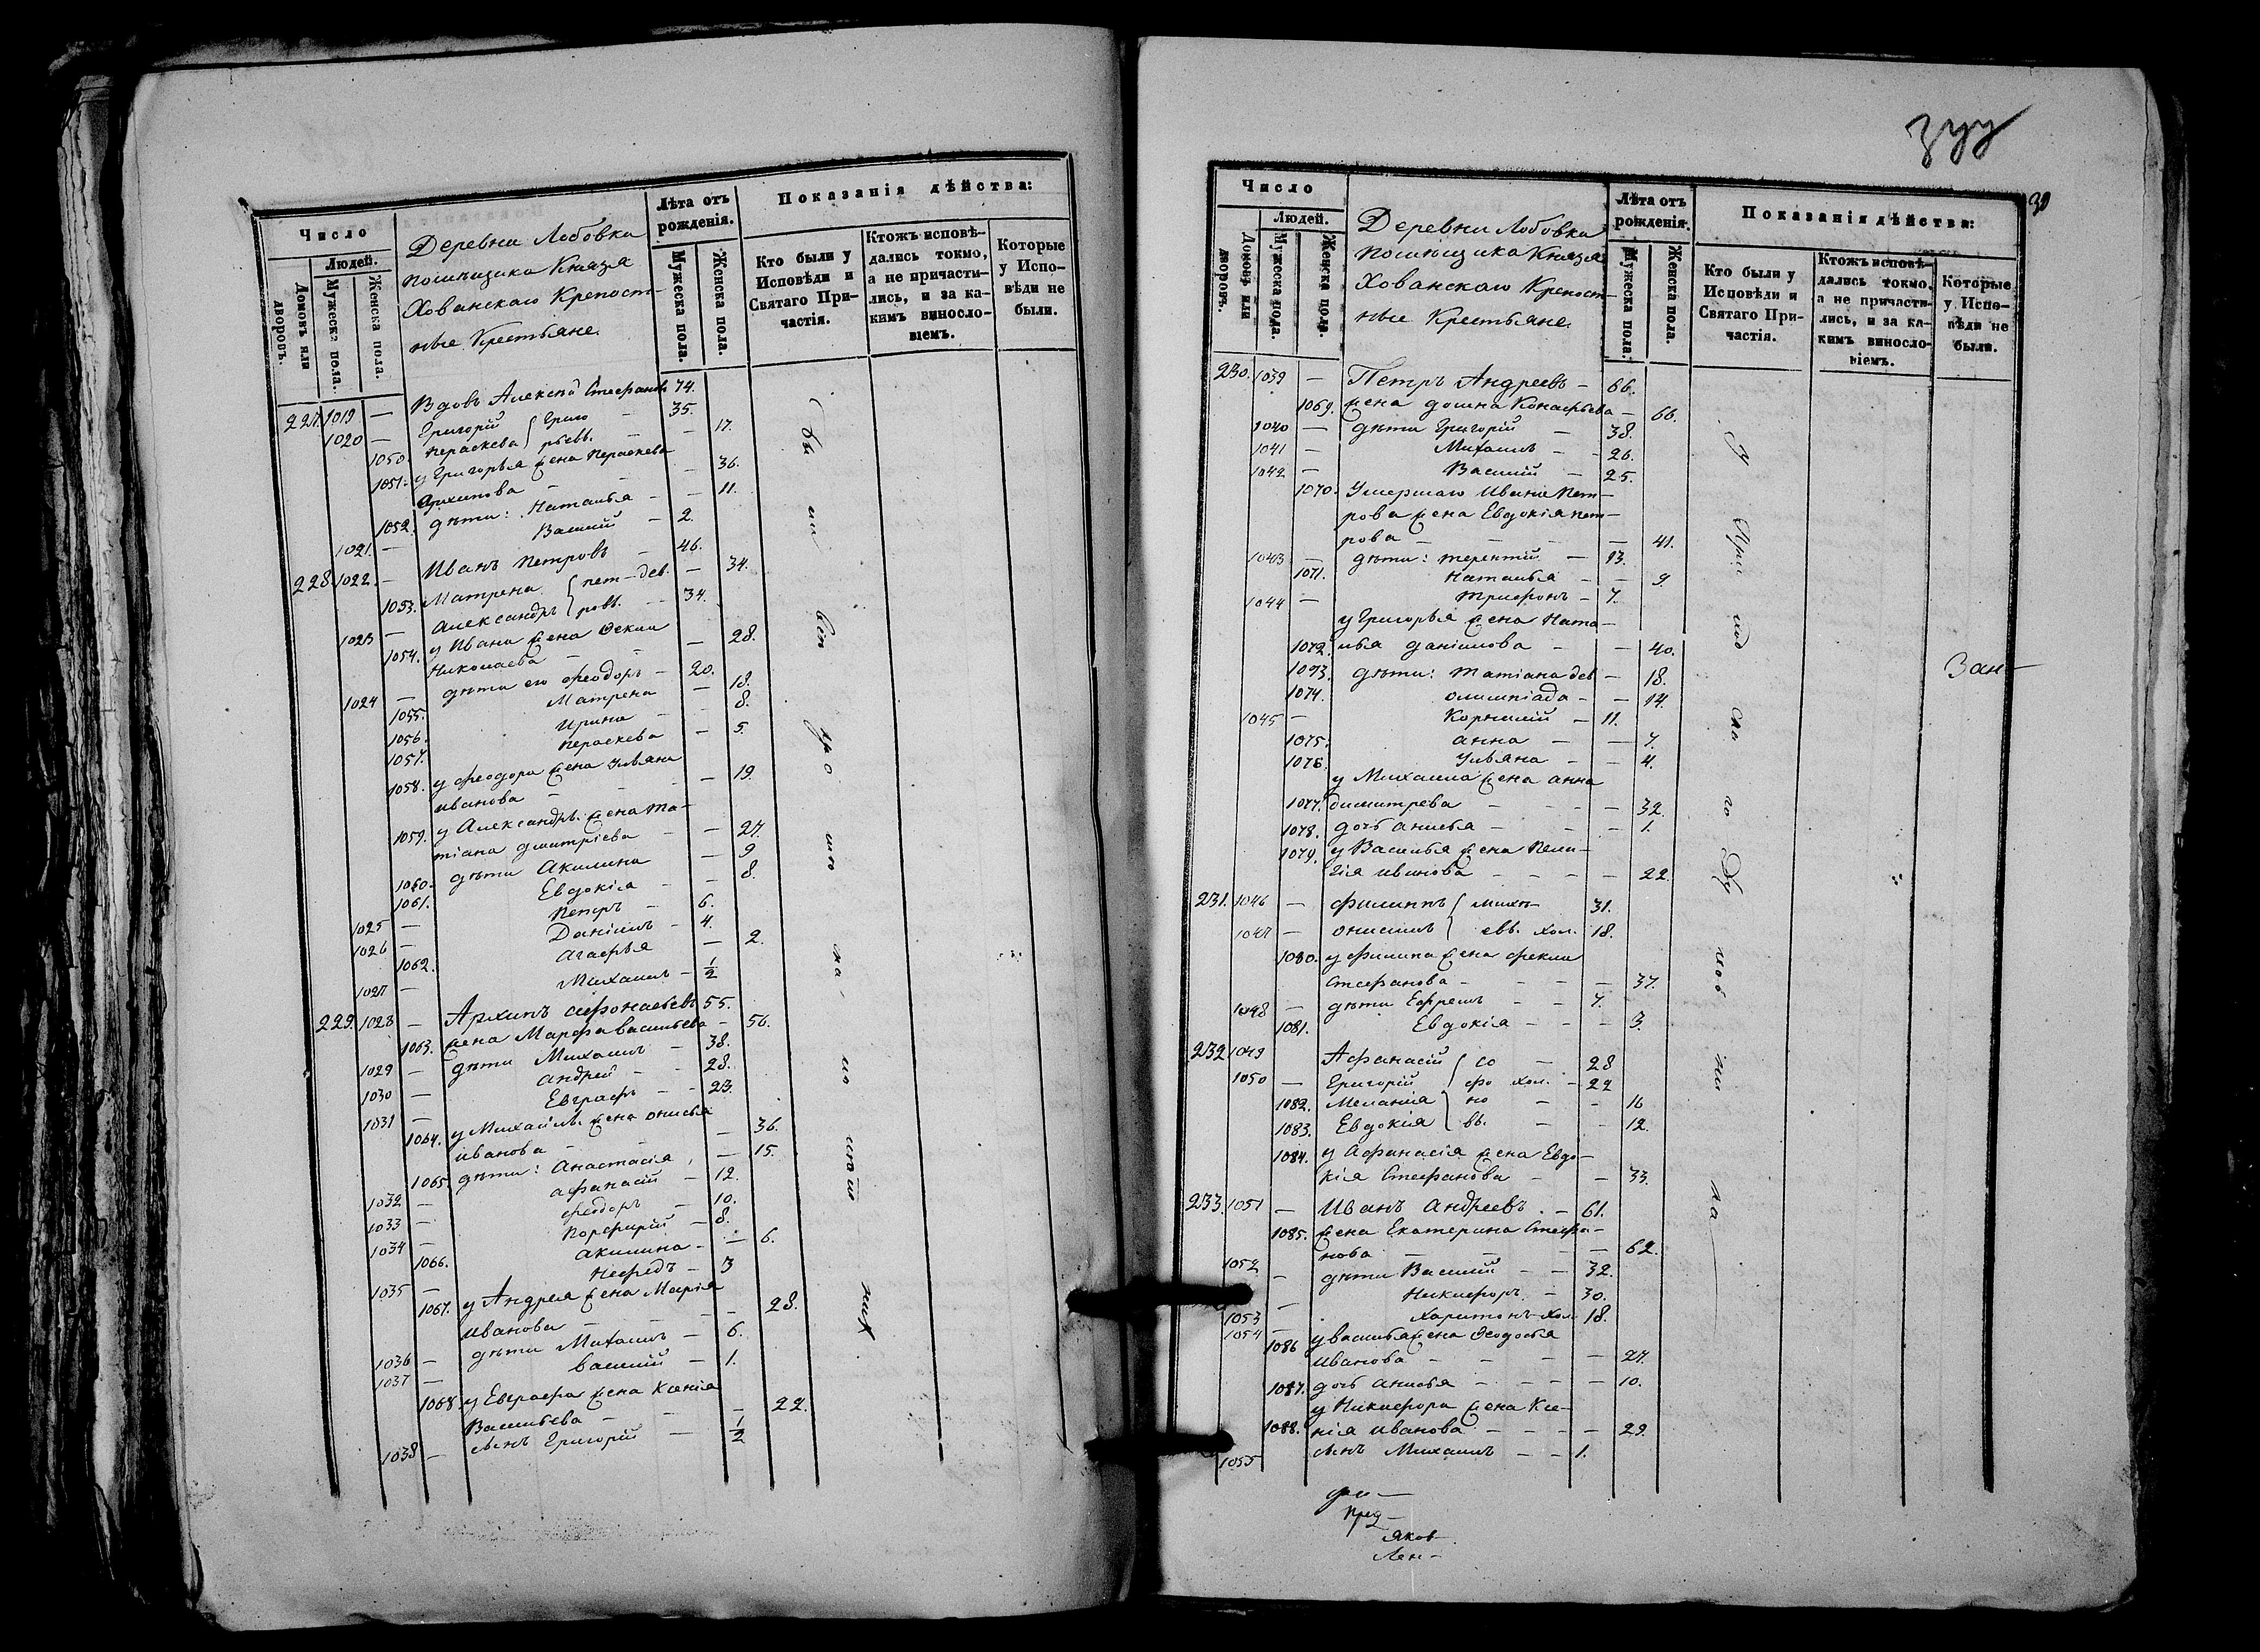 Число
Людей.
Домовъ или дворовъ.
Мужеска пола.
Женска пола.
Деревни Лобовки
помѣщика Князя
Хованскаго Крепост-
ные Крестьяне
Лѣта отъ рожденія.
Мужеска пола.
Женска пола.
Показанія дѣйства:
Кто были у Исповѣди и Святаго При-частія.
Ктожъ исповѣ-дались токмо, а не причасти-лись, и за ка-кимъ винословіемъ.
Которые у Испо-вѣди не были.
227. 1019 — Вдовъ Стефановъ 74.
1020 — Григорій { Григо — 35.
1050. Параскева } рьевы — — 17.
1051. у Григорья жена Параскева
Архипова — — 36.
1052. дѣти: Наталья — — 11.
1021. — Василий — 2.
228. 1022. — Иванъ Петровъ — 46.
1053. Матрена { пет — дев. — 34.
1023 — Александръ } ровы. — 34.
1054. у Ивана жена Фекла
Николаева — — 28.
1024 — дѣти его Феодоръ — 20.
1055. Матрена — 18.
1056. Ирина — 8.
1057. Параскева — 5.
1058. у Феодора жена Ульяна
Иванова — — 19.
1059. у Александра жена Та-
тіана Дмитріева — — 27.
1060. дѣти Акилина — 9
1061. Евдокія — — 8.
1025 — Петръ — 6.
1026 — Даніилъ — 4.
1062. Агафья — 2.
1027 — Михаилъ — 1/2
229. 1028 — Архипъ Афонасьевъ 55.
1063. жена Марфа Васильева — 56.
1029 — дѣти Михаилъ — 38.
1030 — Андрей — — 28.
1031 — Евграфъ — — 23.
1064. у Михаила жена Анисья
Иванова — — 36.
1065. дѣти: Анастасія — 15.
1032 — Афанасій — 12.
1033 — Феодоръ — 10.
1034 — Порфирій — 8.
1066. Акилина — — 6.
1035 — Нефедъ — 3
1067. у Андрея жена Марія
Иванова — — 28.
1036 — дѣти Михаилъ — 6.
1037 — Василий — 1.
1068. у Евграфа жена Ксенія
Васильева — — 22.
1038 — сынъ Григорій — 1/2
39
Число
Людей.
Домовъ или дворовъ.
Мужеска пола.
Женска пола.
Деревни Лобовки
помѣщика Князя
Хованскаго Крепост-
ные Крестьяне
Лѣта отъ рожденія.
Мужеска пола.
Женска пола.
Показанія дѣйства:
Кто были у Исповѣди и Святаго При-частія.
Ктожъ исповѣ-дались токмо, а не причасти-лись, и за ка-кимъ винословіемъ.
Которые у Испо-вѣди не были.
230. 1039 — Петръ Андреевъ — 66.
1069. жена — 66.
1040 — дѣти Григорій — 38.
1041 — Михаилъ — — 26.
1042 — Василий — 25.
1070. Умершаго Ивана Пет-
рова жена Евдокія Пет-
рова — — — 41.
1043 — дѣти: Терентій — 13.
1071. Наталья — — 9
1044 — Трифонъ — 7.
у Григорья жена Ната-
1072. лья Даніилова — — 40.
1073. дѣти: Татіана дев — 18.
1074. Олимпіада — — 14.
1045 — Корнилий — 11.
1075. Анна — — 7.
1076. Ульяна — — 4.
у Михаила жена Анна
1077. Димитрева — — — 32.
1078. дочь Анисья — — 1.
1079. у Василья жена Пела-
гія Иванова — — — — 22.
231. 1046 — Филиппъ { Миха- 31.
1047 — Онисимъ } евы. хол. 18.
1080. у Филипа жена Фекла
Стефанова — — — 37.
1048 — дѣти Ефремъ — — 7.
1081. Евдокія — — — 3.
232 1049 Афанасій { Со — 28
1050 — Григорій фо хол. — 22
1082. Меланія но — — 16
1083. Евдокія } вы. — — 12.
1084. у Афанасія жена Евдо-
кія Стефанова — — 33.
233. 1051 — Иванъ Андреевъ — 61.
1085. жена Екатерина Стефа-
нова — — — 62.
1052 — дѣти Василий — — 32.
1053 — Никифоръ — 30.
1054 — Харитонъ хол. 18.
1086 у Василья жена Феодосья
Иванова — — — 27.
1087. дочь Анисья — — — 10.
у Никифора жена Ксе-
1088. нія Иванова — — — — 29.
1055 сынъ Михаилъ — — 1.
Зан-
Пред-
Яков
Лен-